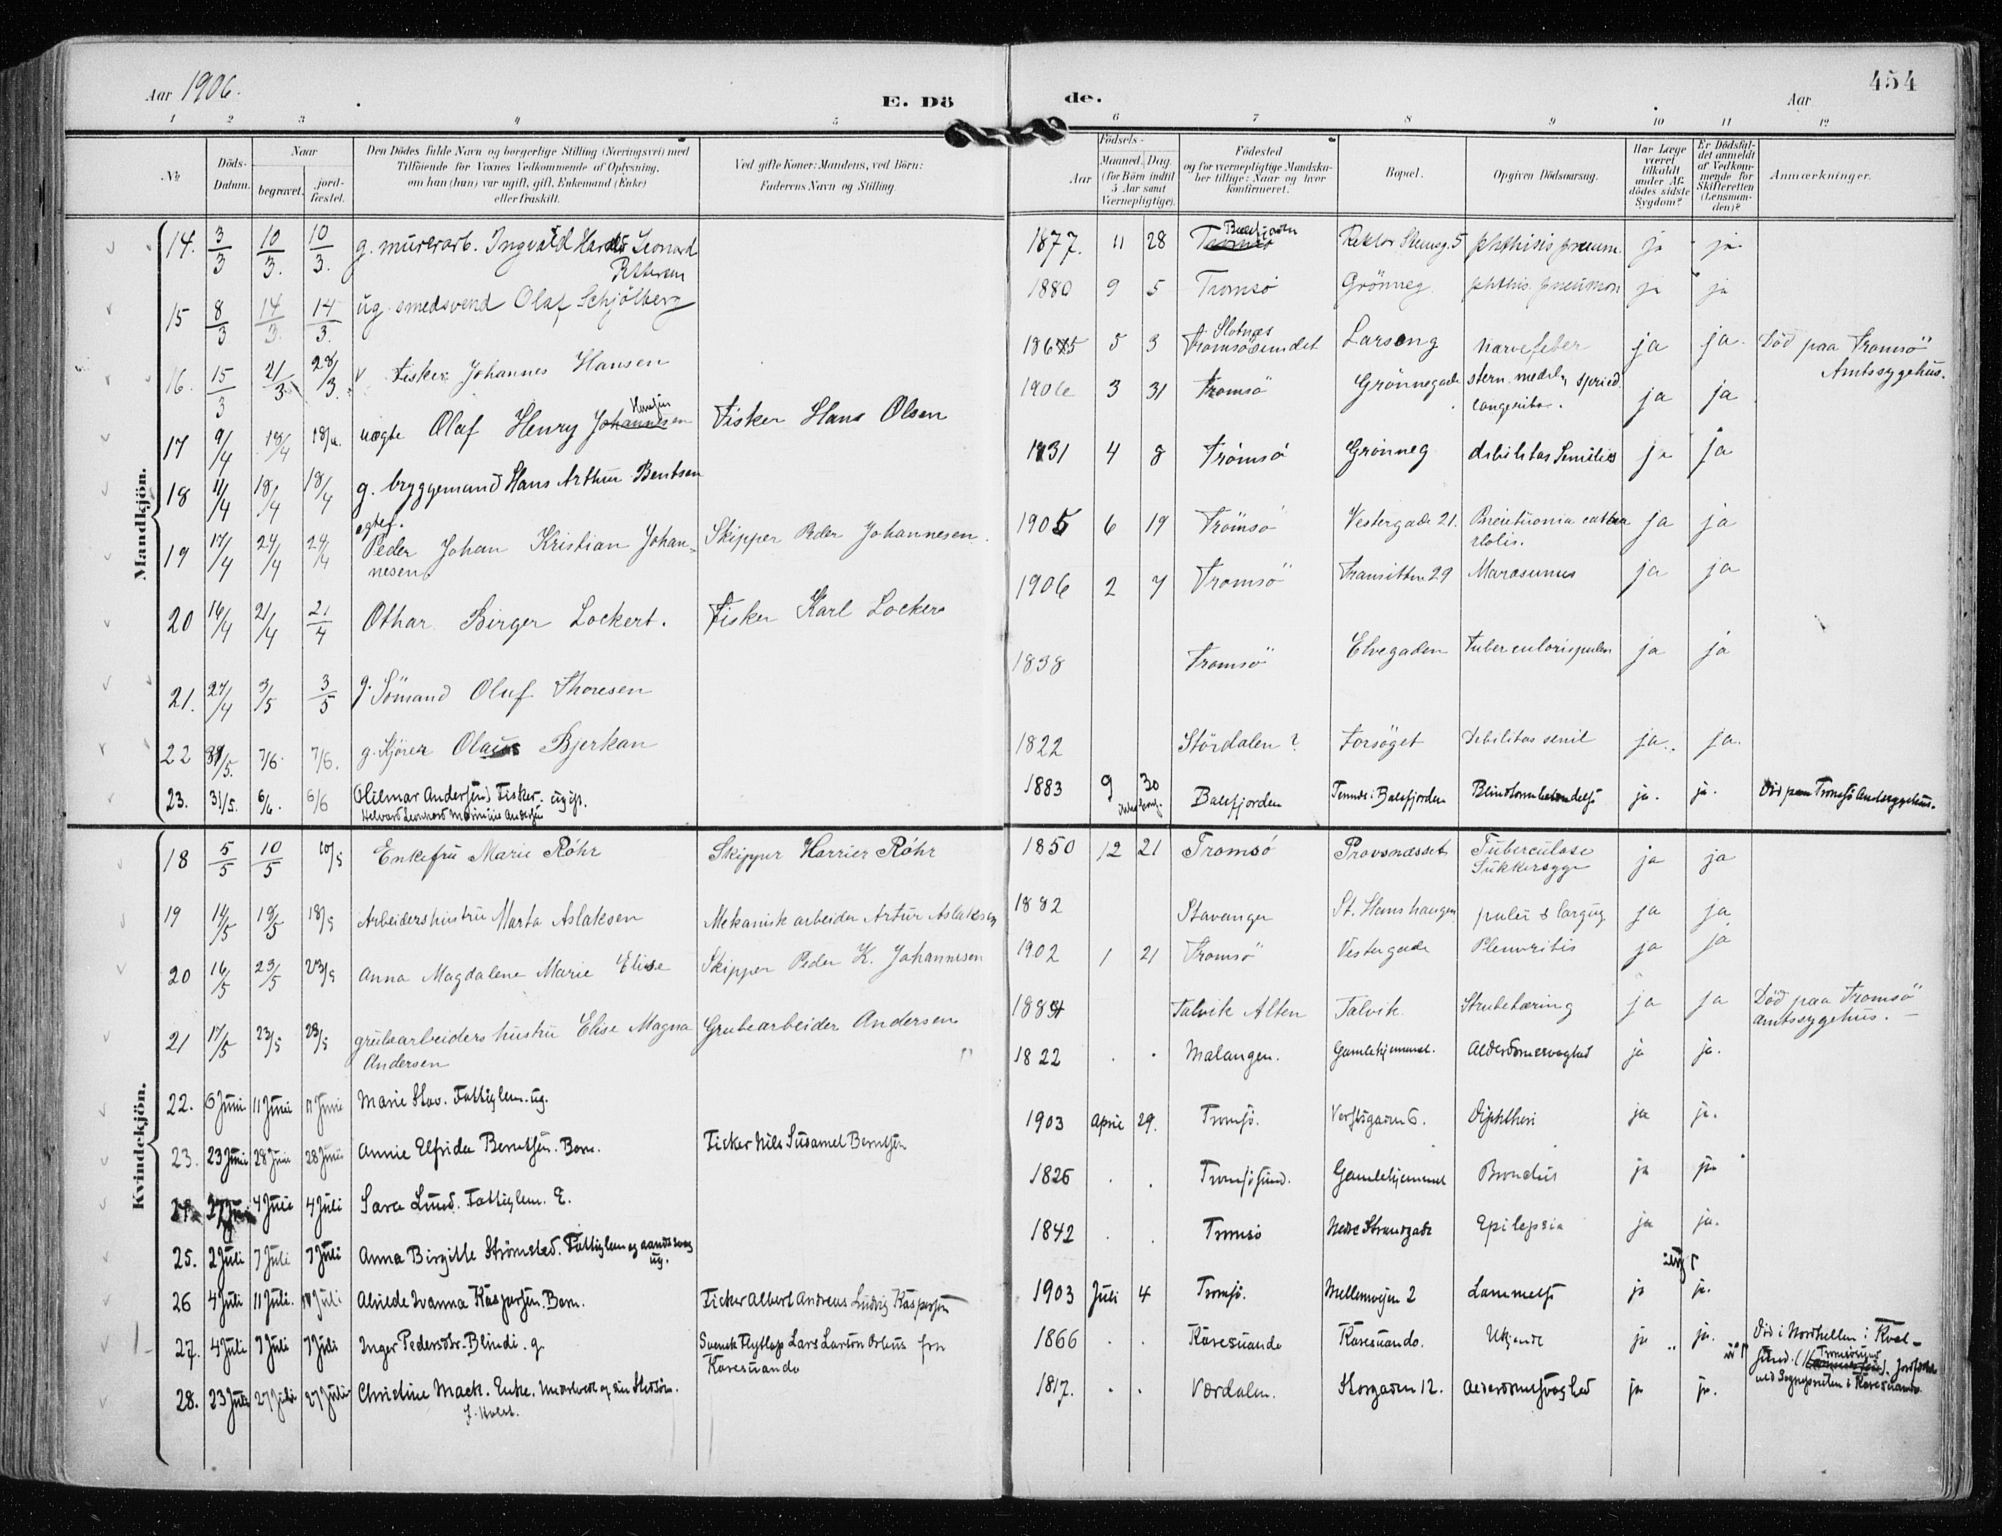 Aar 1906.
E. Dö
de.
Aar
454
1 2 3 4 5 6 7 8 9 10 11 12
No
Döds-Datum.
Naar
begravet.
jord-fæstet.
Den Dödes fulde Navn og borgerlige Stilling (Næringsvei) med
Tilföiende for Voxnes Vedkommende af Oplysning,
om han (hun) var ugift, gift, Enkemand (Enke)
eller fraskilt.
Ved gifte Koner: Mandens, ved Börn:
Faderens Navn og Stilling.
Födsels-
Aar
Maaned. Dag.
(for Börn indtil
5 Aar samt
Værnepligtige).
Födested
og for værnepligtige Mandska-
ber tillige: Naar og hvor
konfirmeret.
Bopæl.
Opgiven Dödsaarsag.
Har Læge
været
tilkaldt
under Af-
dödes sidste
Sygdom?
Er Dödsfal-
det anmeldt
af Vedkom-
mende for
Skifteretten
(Lensman-
den)?
Anmærkninger.
Mandkjön.
14. 3/3 10/3. 10/3. g. murerarb. Ingvald Harald Leonard Pettersen 1877. 11 28 Tromsö Balsfjorden Rektor Steensg. 5 phthisis pneum. ja ja
15 8/3 14/3. 14/3. ug. smedsvend Olaf Schjölberg 1880 9 5 Tromsö Grönneg. phthis. pneumon ja ja
16. 15/3 21/3 28/3. Fisker Johannes Hansen 1865 5 3 Tromsösundet Larseng nervefeber ja ja. Död paa Tromsö Amtssygehus.
17 9/4 18/4 18/4. uægte Olaf Henry Johannesen Hansen Fisker Hans Olsen 1906 3 31 Tromsö Grönnegade ja ja
18 11/4 18/4 18/4 g. bryggemand Hans Arthur Bentsen 1831 4 8 Tromsö Grönneg debilitas Senilis ja ja
19 17/4 24/4 24/4 egtef. Peder Johan Kristian Johan-
nesen. Skipper Peder Johannesen. 1905 6 19 Tromsö Vestergade 21. ja ja
20 16/4 21/4 21/4 Othar Birger Lockert. Fisker Karl Lockert 1906 2 7 Tromsö Transitten 29 Marasmus ja ja
21. 24/4 3/5 3/5 g. Sömand Oluf Thoresen 1838 Tromsö Elvegaden Tuberculosis pulm ja ja
22 31/5. 7/6. 7/6. g. Kjörer Olaus Bjerkan 1822 Stördalen? Forsöget Debilitas senil ja. ja.
23. 31/5. 6/6. 6/6 (Hilmar Andersen) Fisker. ugift.
Helvard Leonhard Marinius Andersen 1883 9 30 Balsfjorden Tennes i Balsfjorden Blindtarmbetændelse ja. ja. Död paa Tromsö Amtssygehus.
Kvindekjön.
18 5/5 10/5 10/5 Enkefru Marie Röhr Skipper Harrier Röhr 1850 12 21 Tromsö Provsnæsset Tuberculose
Sukkersyge ja ja
19 14/5 18/5 18/5 Arbeidershustru Marta Aslaksen Mekanisk arbeider Artur Aslaksen 1882 Stavanger St. Hanshaugen ja ja
20 16/5 23/5 23/5 Anna Magdalene Marie Elise Skipper Peder K. Johannesen 1902 1 21 Tromsö Vestergade Pleuvritis ja ja
21 17/5 23/5 23/5 grubearbeiders hustru Elise Magna
Andersen Grubearbeider Andersen 1884 Talvik Alten Talvik. Strubetæring ja ja Död paa Tromsö
amtssygehus.
22. 6 Juni 11 Juni 11 Juni Marie Stav. Fattiglem. ug. 1822 . . Malangen. Gamlehjemmet. Alderdomssvaghed ja ja.
23. 23 Juni 28 Juni 28 Juni Annie Elfrida Berntsen. Barn. Fisker Nils Susamel Berntsen 1903 April 29. Tromsö. Verftsgaden 6. Diphtheri ja ja.
24. 27 Juni 4 Juli 4 Juli Sara Lund. Fattiglem. E. 1826 . . Tromsösund. Gamlehjemmet Bronchis ja ja
25. 2 Juli 7 Juli 7 Juli Anna Birgitte Strömsted. Fattiglem og aandssvag
ug. 1842 . . Tromsö Nedre Strandgade Epilepsia ja ja.
26 4 Juli 11 Juli. 11 Juli Alvilde Ivanna Kaspersen. Barn. Fisker Albert Andreas Ludvig Kaspersen 1903 Juli 4 Tromsö. Mellemveien 2 Lammelse ja ja.
27. 4 Juli 7 Juli 7 Juli Inger Pedersdr. Blindi. g. Svensk Flytlap Lars Larson Orhus fra
Karesuando 1866 . . Karesuando Karesuando. Ukjendt ja ja. Död i Nordhellen i Kval-
sund. Tromsösund
ved Sognepræsten i Karesuando
28. 23 Juli 27 Juli 27 Juli Christine Mack. Enke. 1817. . . Værdalen. Storgaden 12. Alderdomssvaghed ja ja.